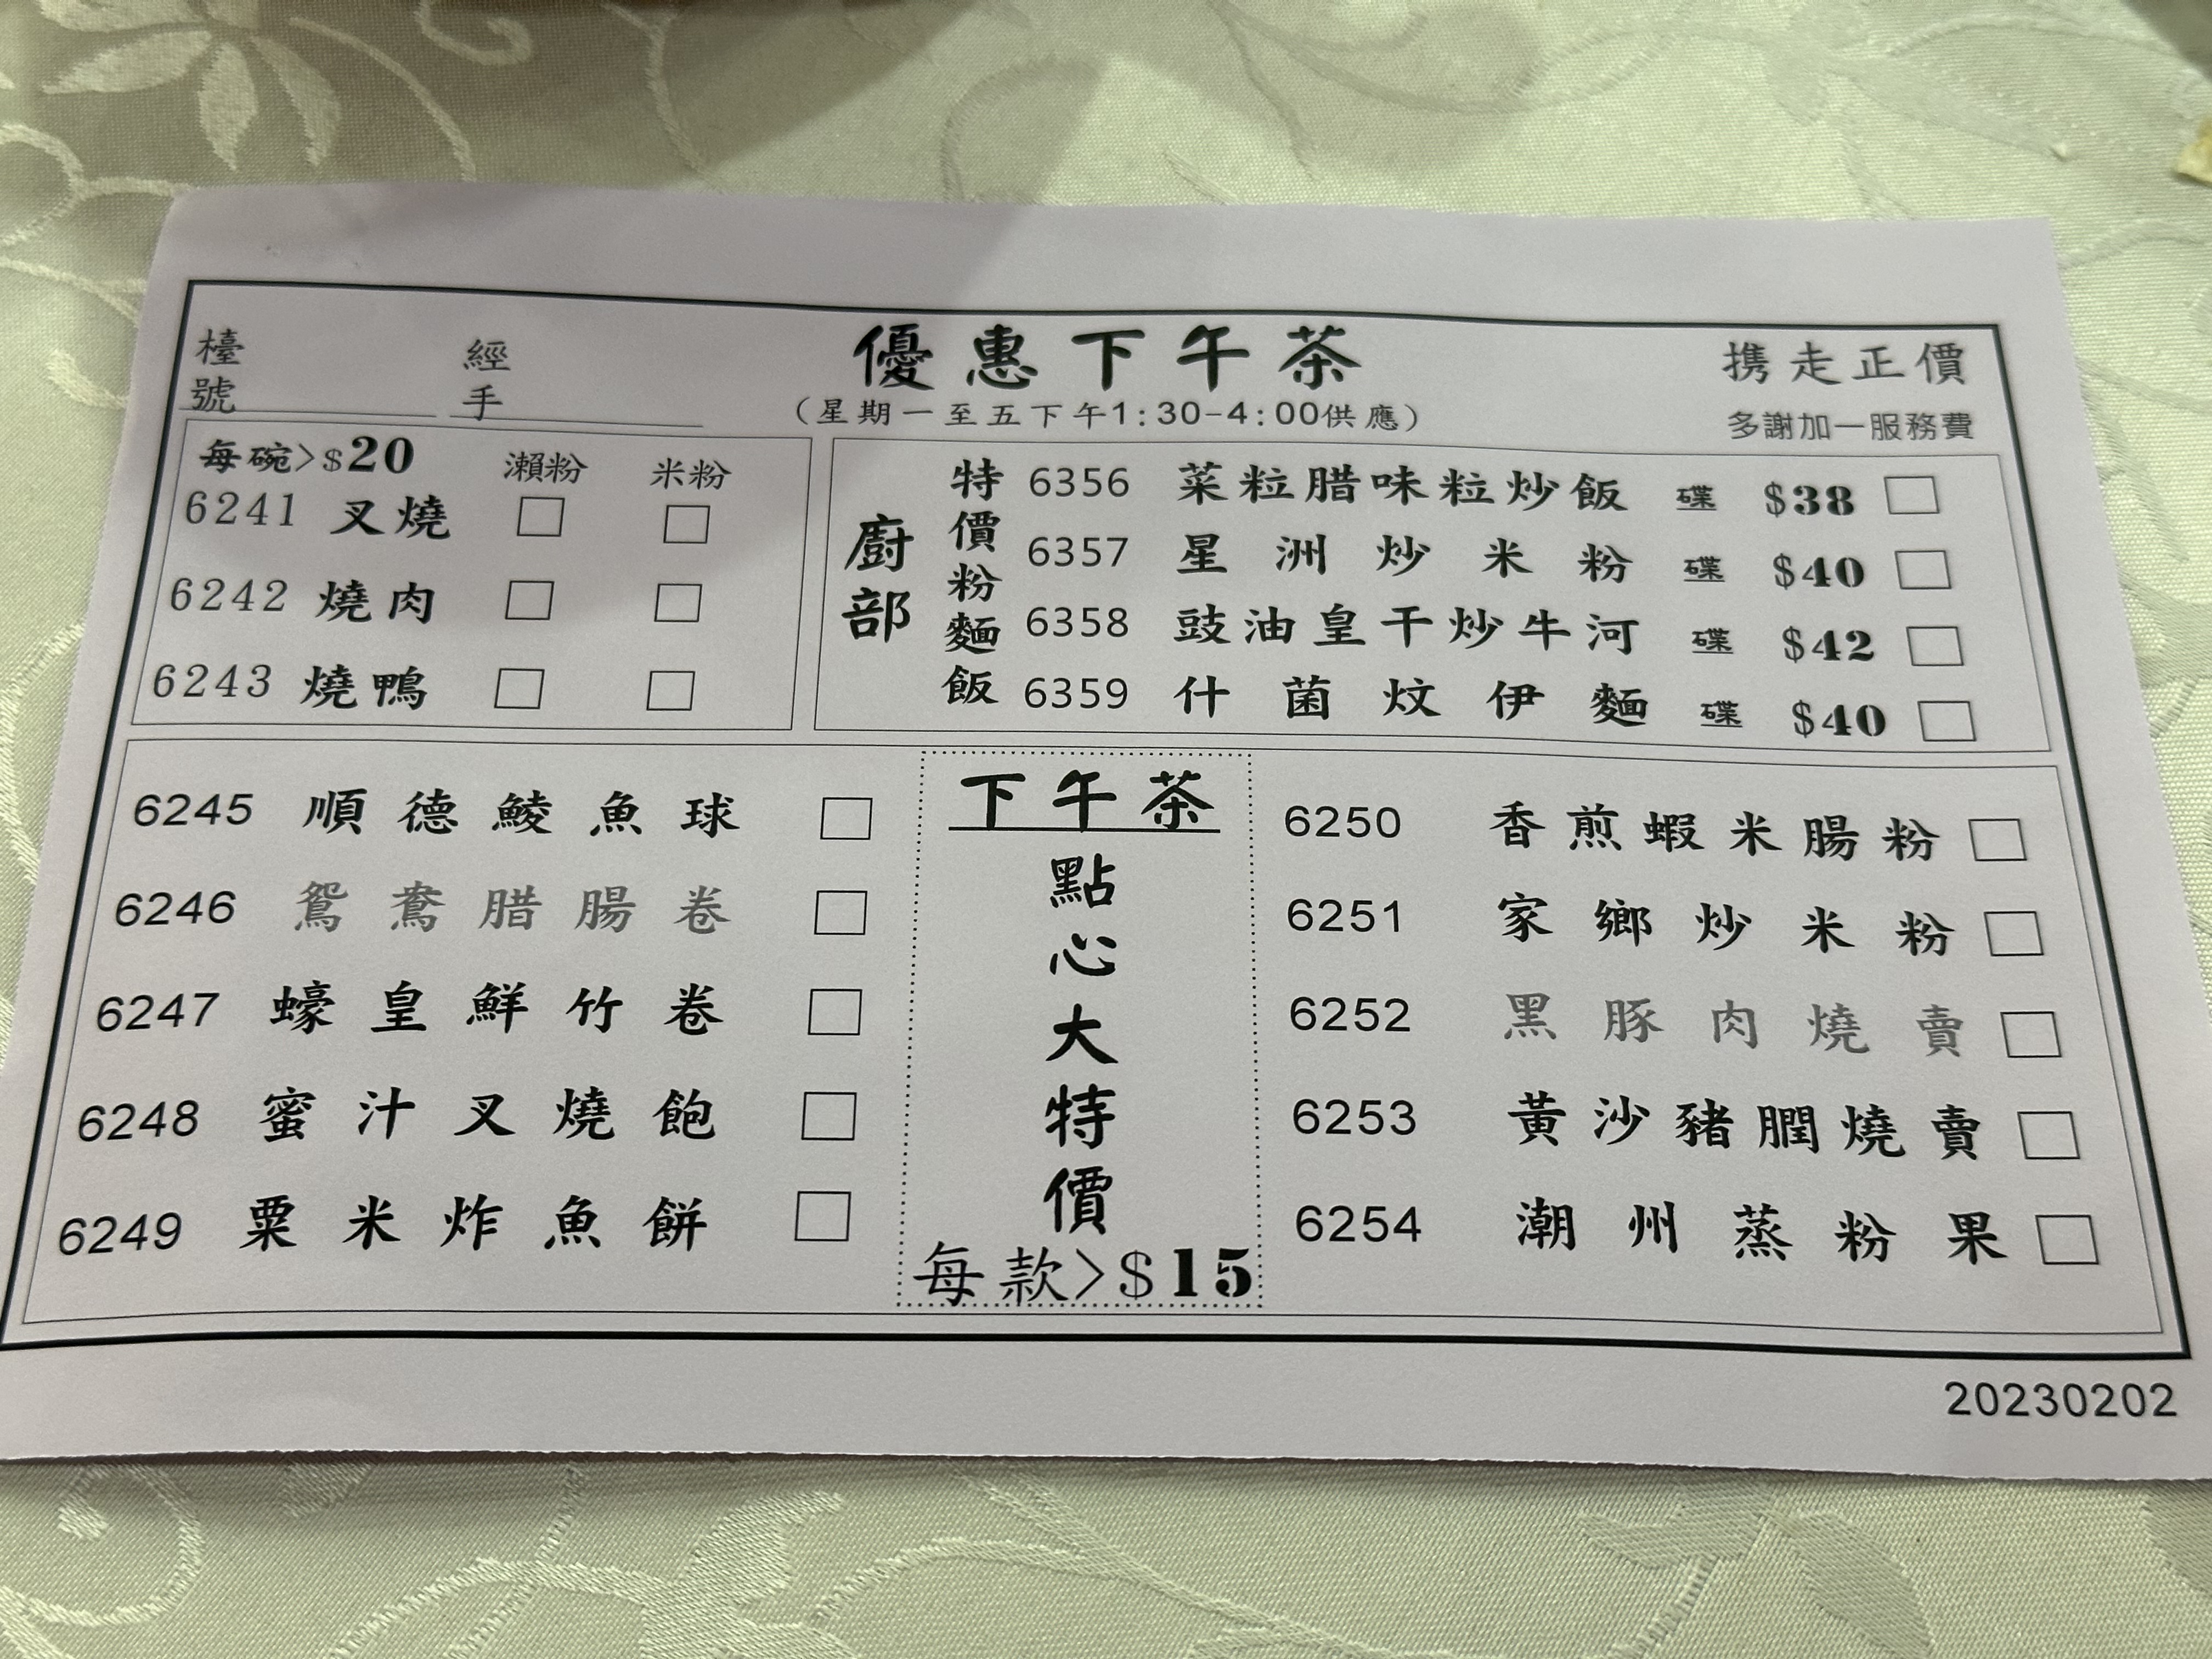 檯號
經手
優惠下午茶
(星期一至五下午1:30-4:00供應)
携走正價
多謝加一服務費
每碗>$20 瀨粉 米粉
6241 叉燒
6242 燒肉
6243 燒鴨
廚部
特價粉麵飯
6356 菜粒腊味粒炒飯 碟 $38
6357 星洲炒米粉 碟 $40
6358 豉油皇干炒牛河 碟 $42
6359 什菌炆伊麵 碟 $40
6245 順德鯪魚球
6246 鴛鴦腊腸卷
6247 蠔皇鮮竹卷
6248 蜜汁叉燒飽
6249 粟米炸魚餅
下午茶
點心大特價
每款>$15
6250 香煎蝦米腸粉
6251 家鄉炒米粉
6252 黑豚肉燒賣
6253 黃沙豬膶燒賣
6254 潮州蒸粉果
20230202